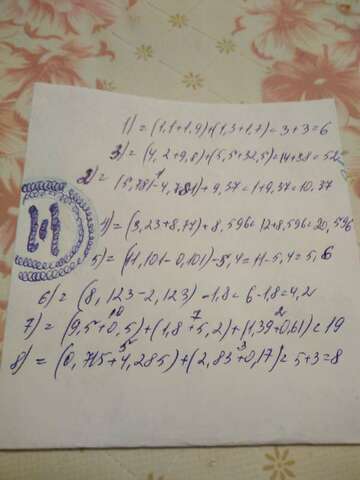 1) = (1,1+1,9)+(1,3+1,7)= 3+3=6
3) = (4,2+9,8)+(5,5+32,5)=14+38=52
2) = (5,781-4,781)+9,37=1+9,37=10,37
4) = (3,23+8,77)+8,596=12+8,596=20,596
5) = (11,101-0,101)-5,4=11-5,4=5,6
6) = (8,123-2,123)-1,8=6-1,8=4,2
7) = (9,5+0,5)+(1,8+5,2)+(1,39+0,61)=19
8) = (0,715+4,285)+(2,83+0,17)=5+3=8